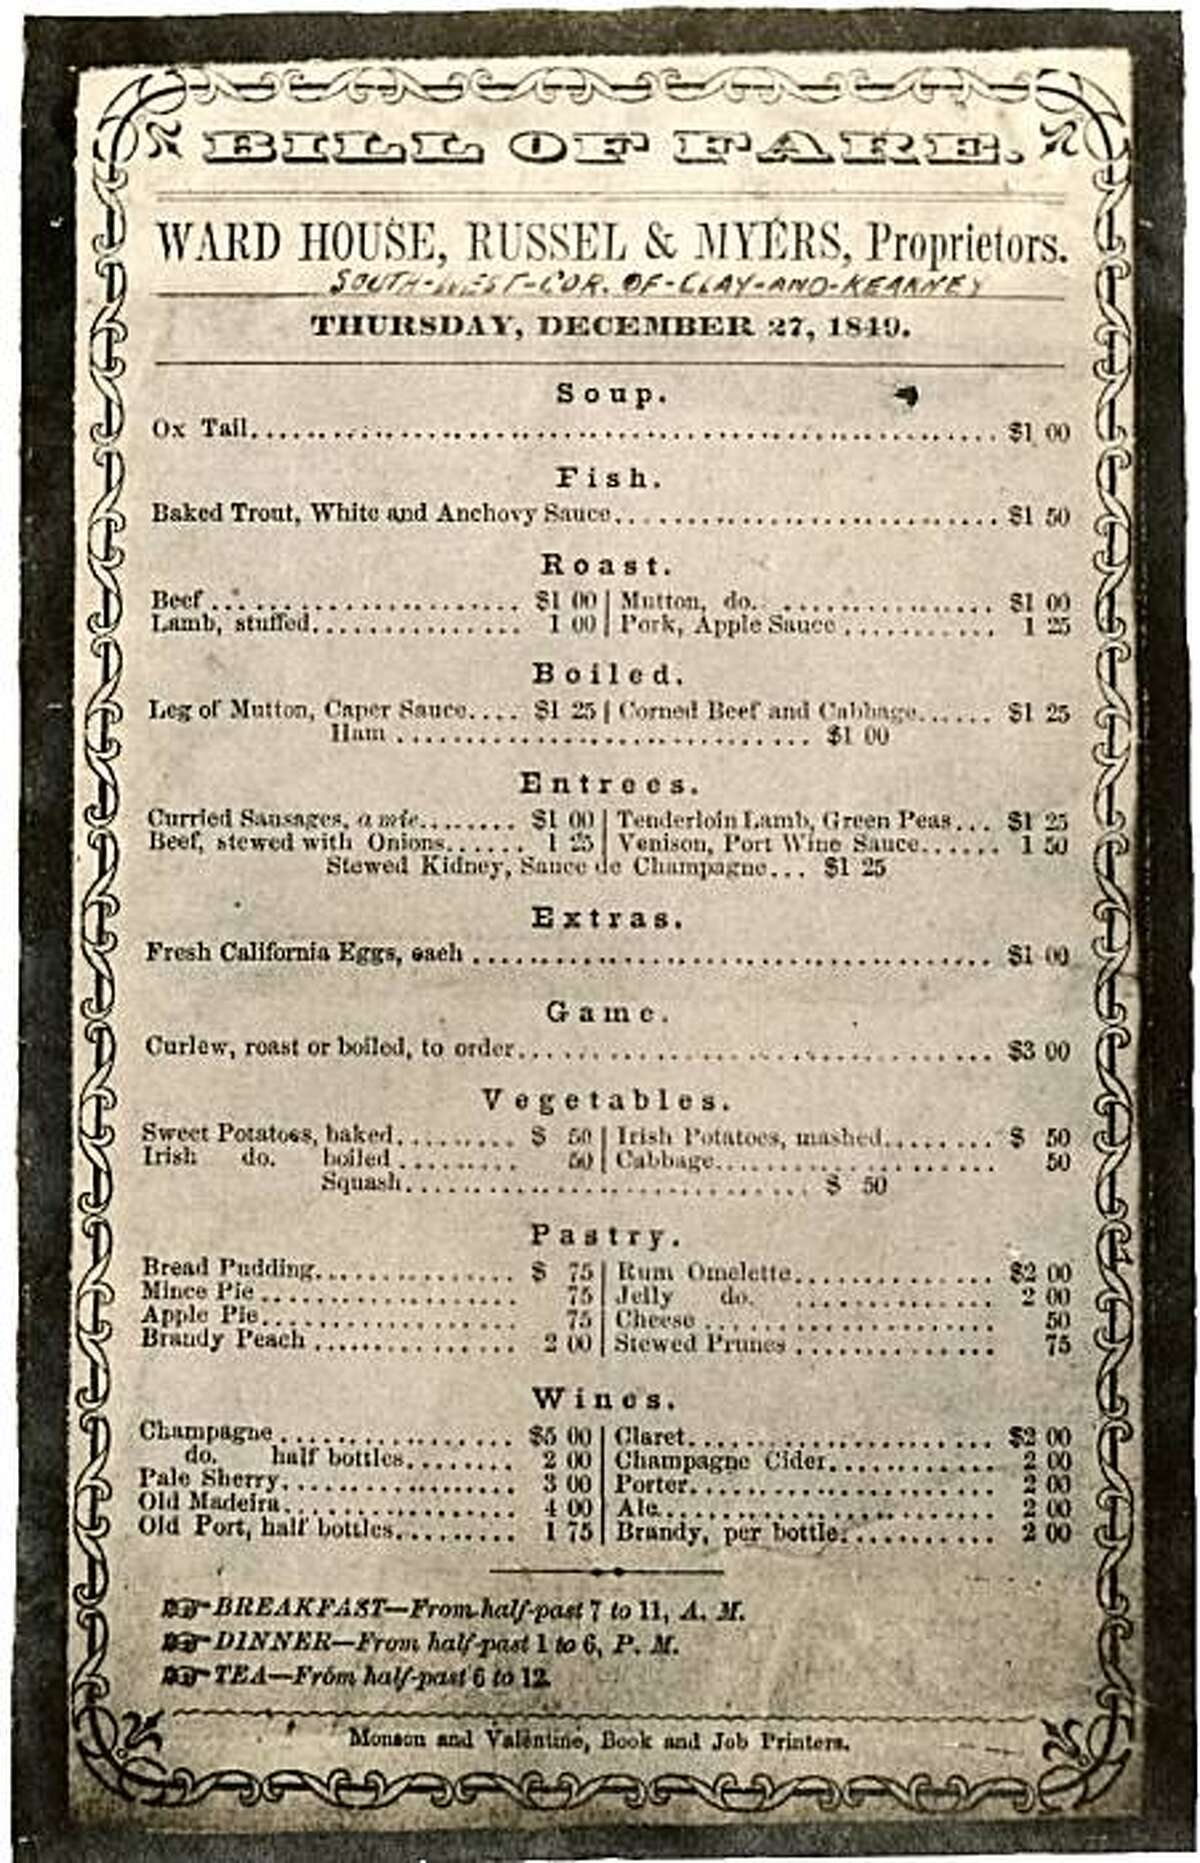 BILL OF FARE.
WARD HOUSE, RUSSEL & MYERS, Proprietors.
SOUTH-WEST-COR. OF-CLAY-AND-KEARNEY
THURSDAY, DECEMBER 27, 1849.
Soup.
Ox Tail.......... $1 00
Fish.
Baked Trout, White and Anchovy Sauce.......... $1 50
Roast.
Beef.......... $1 00 | Mutton, do. .......... $1 00
Lamb, stuffed.......... 1 00 | Pork, Apple Sauce.......... 1 25
Boiled.
Leg of Mutton, Caper Sauce.... $1 25 | Corned Beef and Cabbage...... $1 25
Ham.......... $1 00
Entrees.
Curried Sausages, a mie........ $1 00 | Tenderloin Lamb, Green Peas... $1 25
Beef, stewed with Onions...... 1 25 | Venison, Port Wine Sauce...... 1 50
Stewed Kidney, Sauce de Champagne... $1 25
Extras.
Fresh California Eggs, each.......... $1 00
Game.
Curlew, roast or boiled, to order.......... $3 00
Vegetables.
Sweet Potatoes, baked.......... $ 50 | Irish Potatoes, mashed........ $ 50
Irish do. boiled.......... 50 | Cabbage.......... 50
Squash.......... $ 50
Pastry.
Bread Pudding.......... $ 75 | Rum Omelette.......... $2 00
Mince Pie.......... 75 | Jelly do. .......... 2 00
Apple Pie.......... 75 | Cheese.......... 50
Brandy Peach.......... 2 00 | Stewed Prunes.......... 75
Wines.
Champagne.......... $5 00 | Claret.......... $2 00
do. half bottles........ 2 00 | Champagne Cider.......... 2 00
Pale Sherry.......... 3 00 | Porter.......... 2 00
Old Madeira.......... 4 00 | Ale.......... 2 00
Old Port, half bottles......... 1 75 | Brandy, per bottle.......... 2 00
☞ BREAKFAST—From half-past 7 to 11, A. M.
☞ DINNER—From half-past 1 to 6, P. M.
☞ TEA—From half-past 6 to 12.
Monson and Valentine, Book and Job Printers.